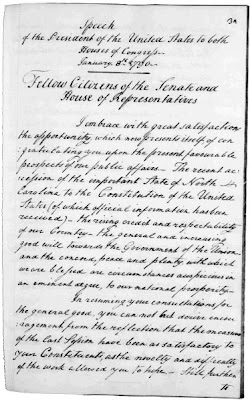 Speech
of the President of the United States to both
Houses of Congress
January 8th 1790.
Fellow Citizens of the Senate and
House of Representatives
I embrace with great satisfaction
the opportunity, which now presents itself, of con
gratulating you upon the present favourable
prospects of our public affairs. The recent ac
cession of the important State of North
Carolina, to the Constitution of the United
States (of which official information has been
received) - the rising credit and respectability
of our Country - the general and increasing
good will towards the Government of the Union
and the concord, peace and plenty, with which
we are blessed are circumstances auspicious in
an eminent degree to our national prosperity.
In resuming your consultations for
the general good, you can not but derive encou
ragement from the reflection that the measures
of the last Session have been as satisfactory to
your Constituents, as the novelty and difficulty
of the work allowed you to hope - Still further
to